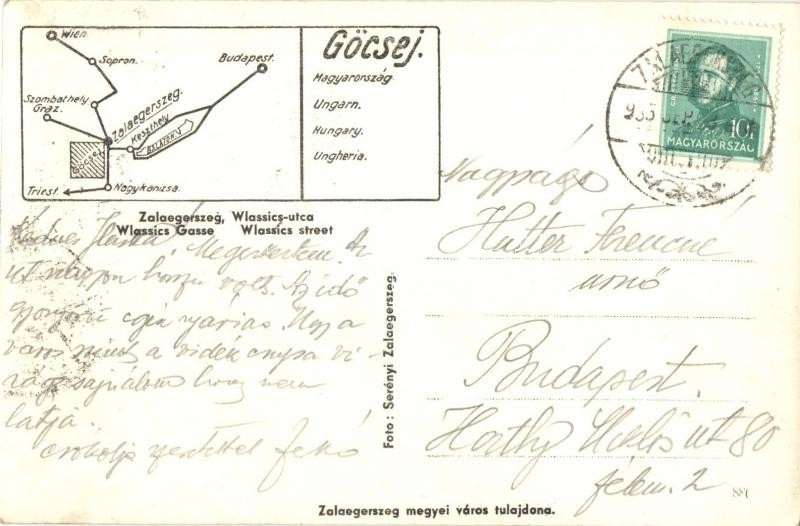 Wien.
Sopron.
Budapest.
Szombathely
Graz.
Zalaegerszeg.
Keszthely
BALATON
Göcsej
Triest.
Nagykanizsa.
Göcsej.
Magyarország
Ungarn.
Hungary.
Ungheria.
Zalaegerszeg, Wlassics-utca
Wlassics Gasse Wlassics street
Kedves Megérkeztem. Az
út nagyon hosszu volt. Az idő
gyönyörü egész nyárias. Ugy a
város mint a vidék csupa vi-
rág sajnálom hogy nem
látja.
csókolja szeretettel
Foto: Serényi Zalaegerszeg.
ZALAEGERSZEG
10f
MAGYARORSZÁG
Nagyságos
Hutter Ferencné
urnő
Budapest.
Horthy Miklós út 80
félem. 2
Zalaegerszeg megyei város tulajdona.